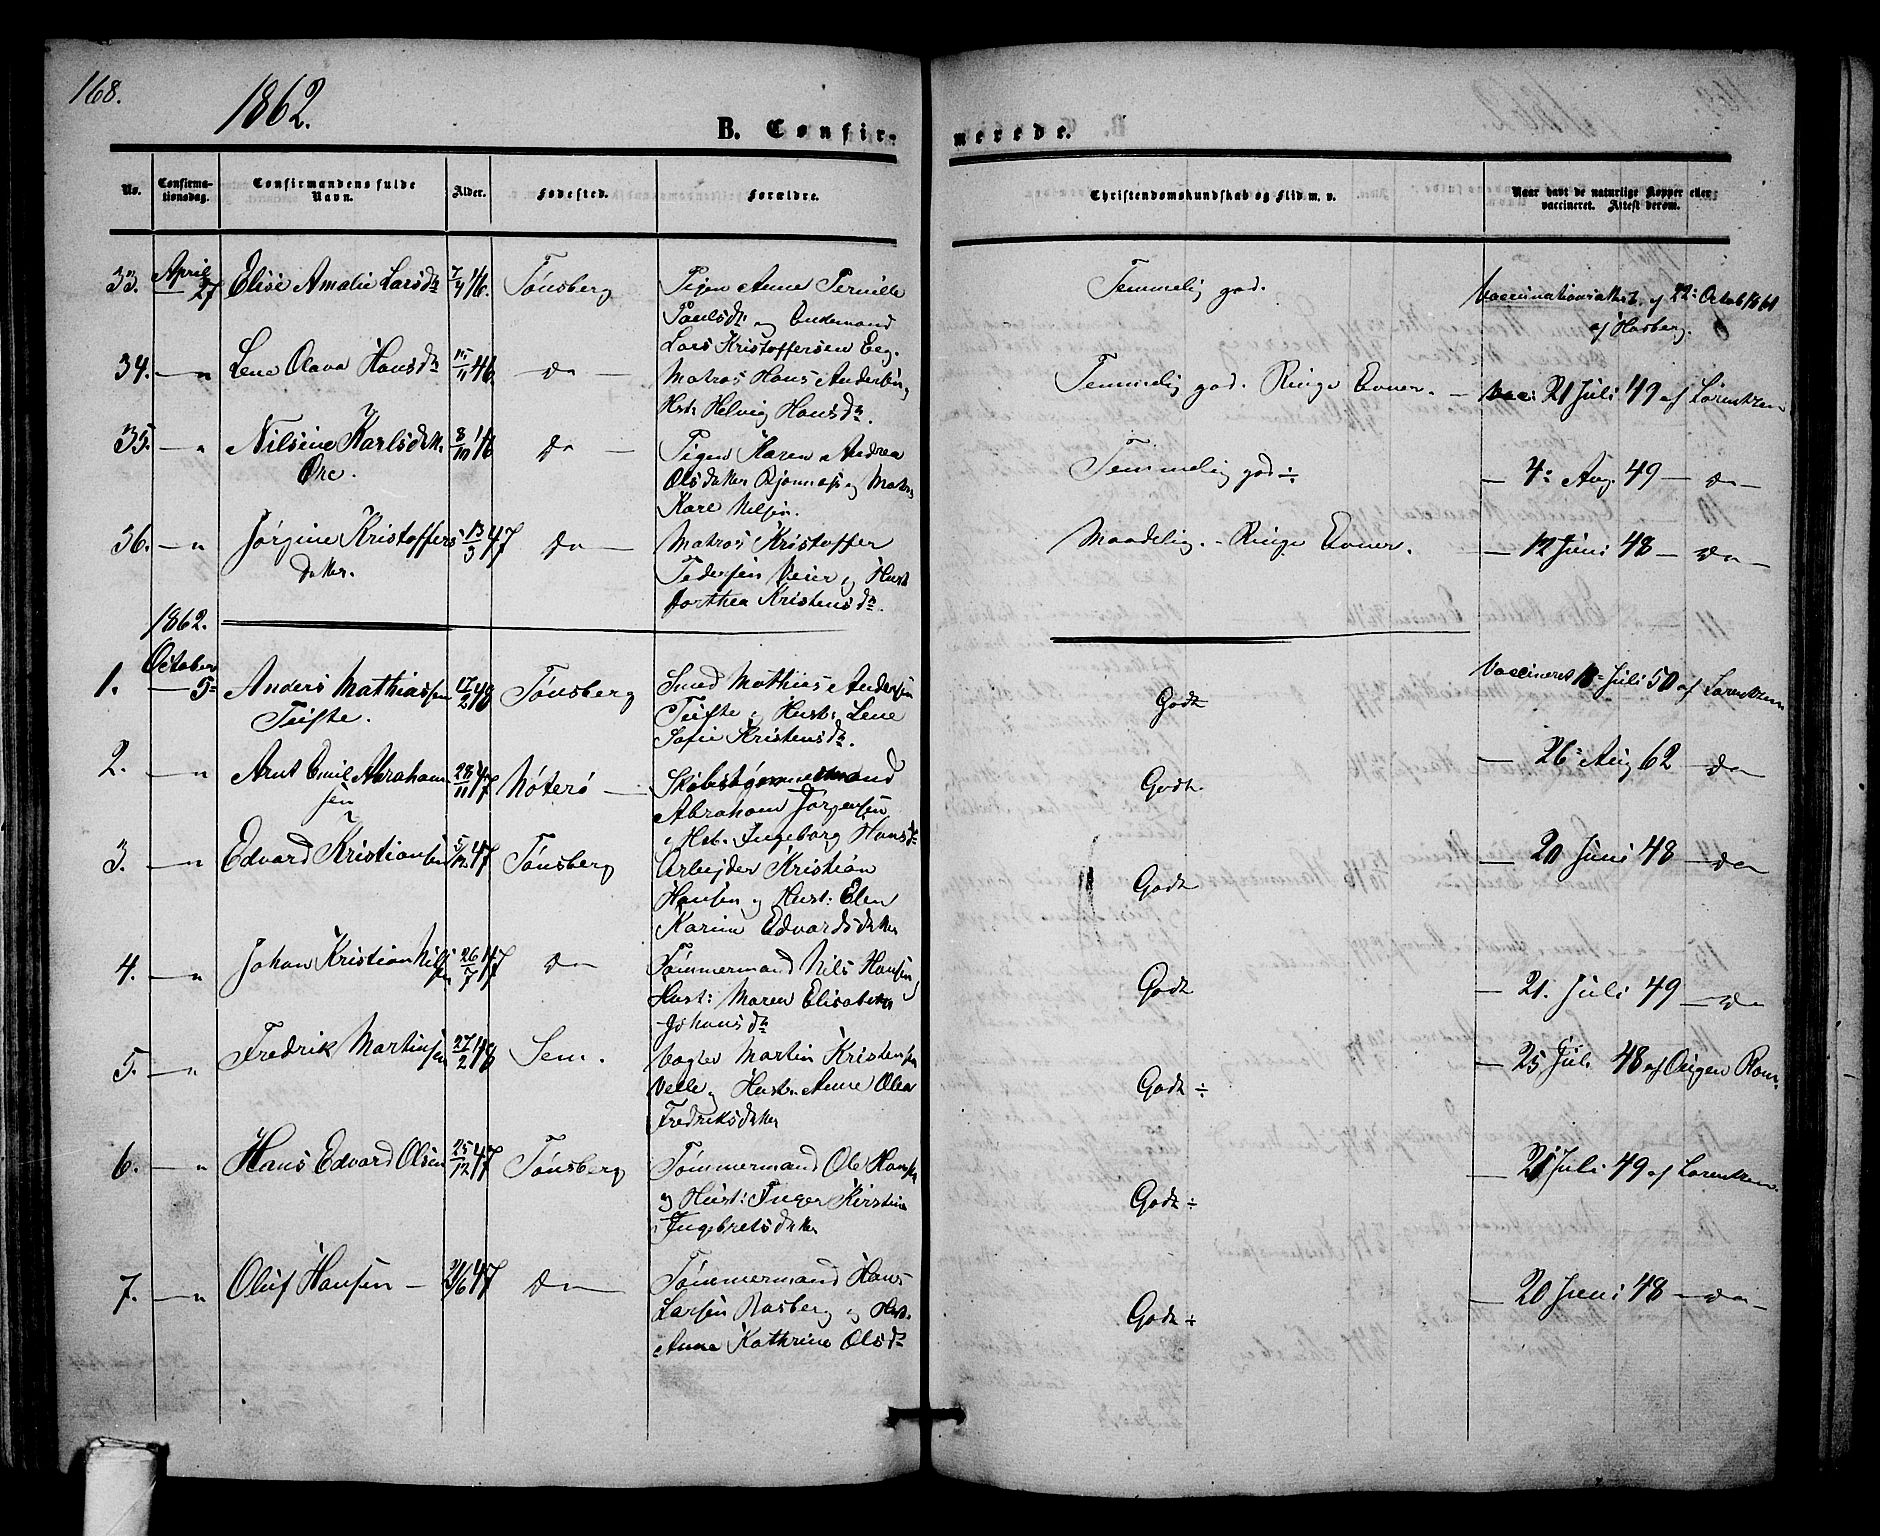 168.
1862.
B. Confirmerede.
No. | Confirmationsdag. | Confirmandens fulde Navn. | Alder. | Fødested. | Forældre. | Christendomskundskab og Flid m. v. | Naar havt de naturlige Kopper eller vaccineret. Attest derom.
33. April 27 Elise Amalie Larsdr 7/4 46. Tønsberg Pigen Anne Pernille Temmelig god. Vaccinationsattest af 22: Octob 1861
Paulsdr og Enkemand af Hasberg.
Lars Kristoffersen Eeg.
34. — " Lene Olava Hansdr 15/11 46 Do — Matros Hans Andersen Temmelig god. Ringe Evner. — Vacc: 21 Juli 49 af Lorentzen
Hst: Helvig Hansdr.
35. — " Nilsine Karlsdtr. 8/10 46 Do — Pigen Karen Andrea Temmelig god ÷ — 4: Aug. 49 — Do —
Øre. Olsdatter og Matros
Karl Nilsen.
36. — " Jørgine Kristoffers 13/3 47 Do — Matros Kristoffer Maadelig. - Ringe Evner. — 12 Juni 48 — Do —
datter. Pedersen Veier og Hust
Dorthea Kristensdr.
1862.
October
1. — 5= Anders Mathiassen 17/2 48 Tønsberg Smed Mathias Andersen Godt Vaccineret 18= Juli 50 af Lorentzen
Tufte. Tufte og Hust: Lene
Sofie Kristensdr.
2. — " Arnt Emil Abraham 28/11 47 Nøterø — Skibstømmermand Godt. — 26= Aug 62 — Do —
sen Abraham Jørgensen
Hst. Ingeborg Hansdr
3. — " Edvard Kristiansen 5/12 47 Tønsberg Arbejder Kristian Godt — 20 Juni 48 — Do
Hansen og Hust: Elen
Karine Edvardsdatter
4. — " Johan Kristian Nilsen 26/7 47 Do — Tømmermand Nils Hansen Godt — 21. Juli 49 — Do
Hust: Maren Elisabeth
Johansdr
5. — " Fredrik Martinsen 27/2 48 Sem. Vogter Martin Kristensen Godt ÷ — 25 Juli 48 af
Velle og Hust: Anne Olea
Fredriksdatter
6. — " Hans Edvard Olsen 25/12 47 Tønsberg Tømmermand Ole Hansen Godt ÷ — 21 Juli 49 af Lorentzen.
og Hust: Inger Kirstine
Ingebretsdatter
7. — " Oluf Hansen — 21/6 47 Do — Tømmermand Hans Godt ÷ — 20 Juni 48 — Do —
Larsen Rosberg og Hst.
Anne Kathrine Olsdr